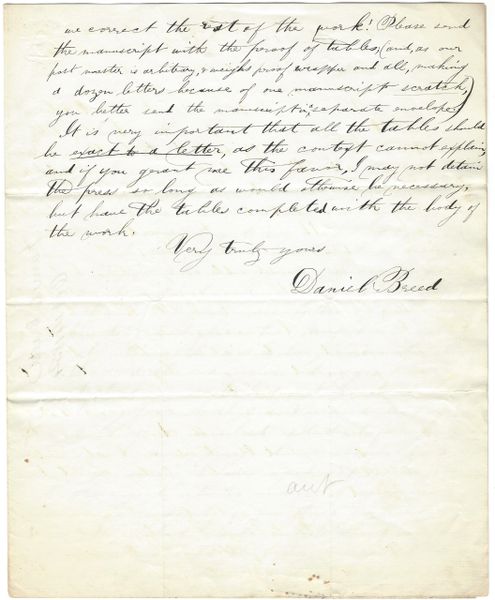 we correct the rest of the work! Please send
the manuscript with the proof of tables, (and, as our
post master is arbitrary, & weighs proof wrapper and all, making
a dozen letters because of one manuscript scratch,
you better send the manuscript in separate envelope)
It is very important that all the tables should
be exact to a letter, as the context cannot explain,
and if you grant me this favor, I may not detain
the press so long as would otherwise be necessary,
but have the tables completed with the body of
the work.
Very truly yours
Daniel Breed
aut